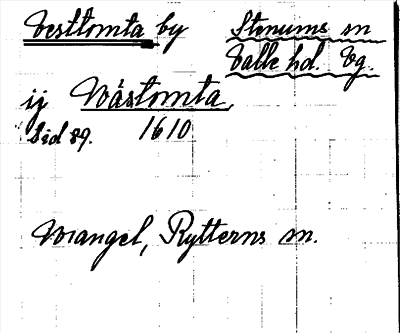 Vesttomta by
Stenums sn
Valle hd. Vg.
ij Wästomta,
Sid 89. 1610
Wrangel, Rytterns sn.